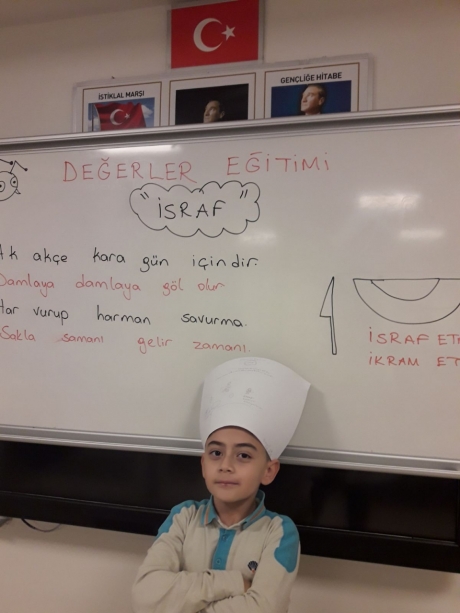 İSTİKLAL MARŞI
GENÇLİĞE HİTABE
DEĞERLER EĞİTİMİ
"İSRAF"
akçe kara gün içindir.
Damlaya damlaya göl olur
vurup harman savurma.
Sakla samanı gelir zamanı.
İSRAF
İKRAM